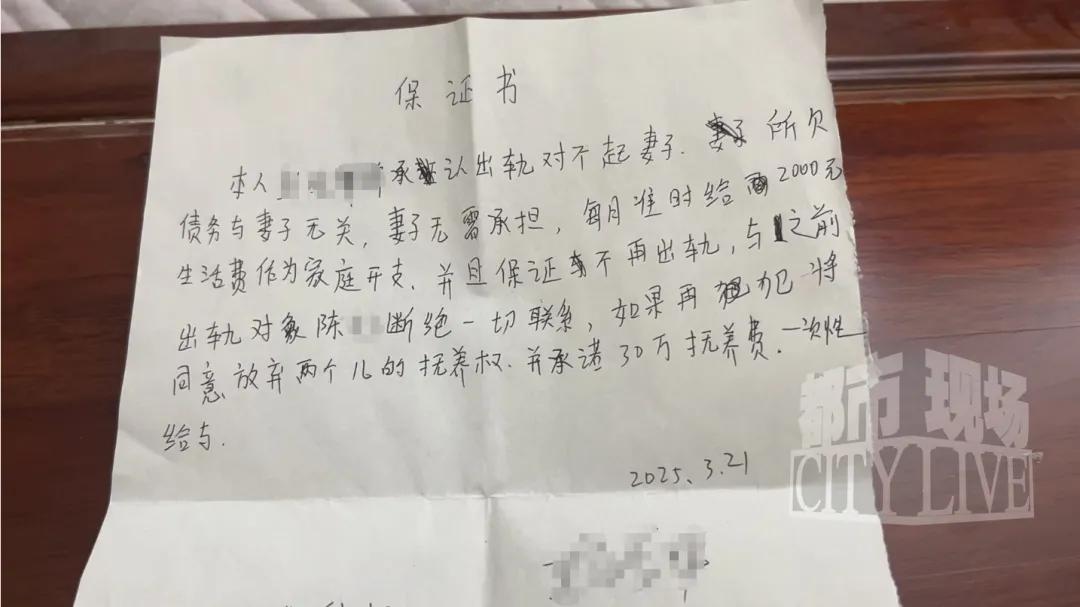 保证书
本人 承认出轨对不起妻子.所欠
债务与妻子无关,妻子无需承担,每月准时给2000元
生活费作为家庭开支.并且保证不再出轨,与之前
出轨对象陈 断绝一切联系,如果再犯将
同意放弃两个儿的抚养权.并承诺30万抚养费.一次性
给与.
2025.3.21
都市现场
CITY LIVE